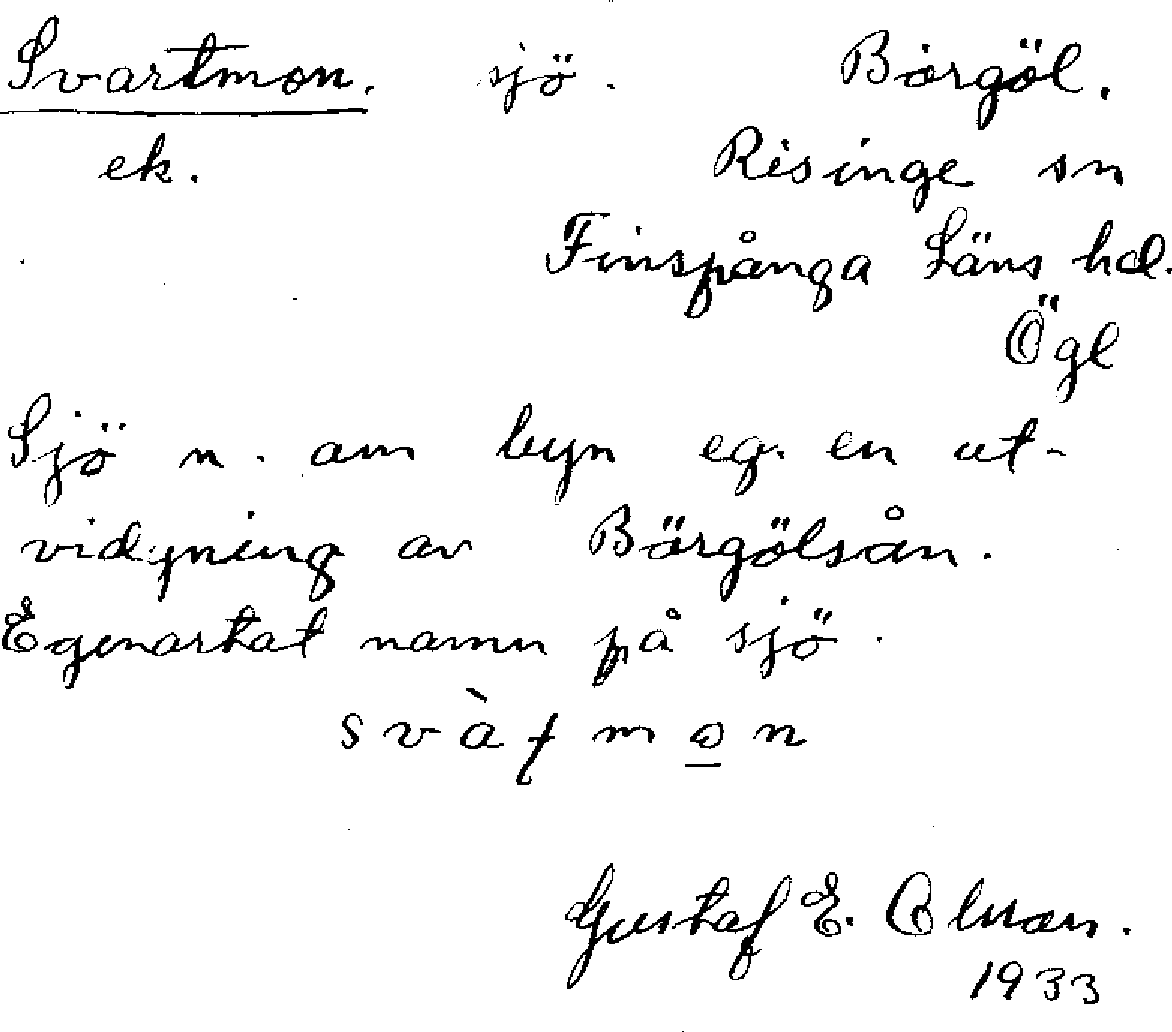 Svartmon. sjö. Börgöl.
ek. Risinge sn
Finspånga Läns hd.
Ögl
Sjö n. om byn eg. en ut-
vidgning av Börgölsån.
Egenartat namn på sjö.
Gustaf E. Olsson.
1933